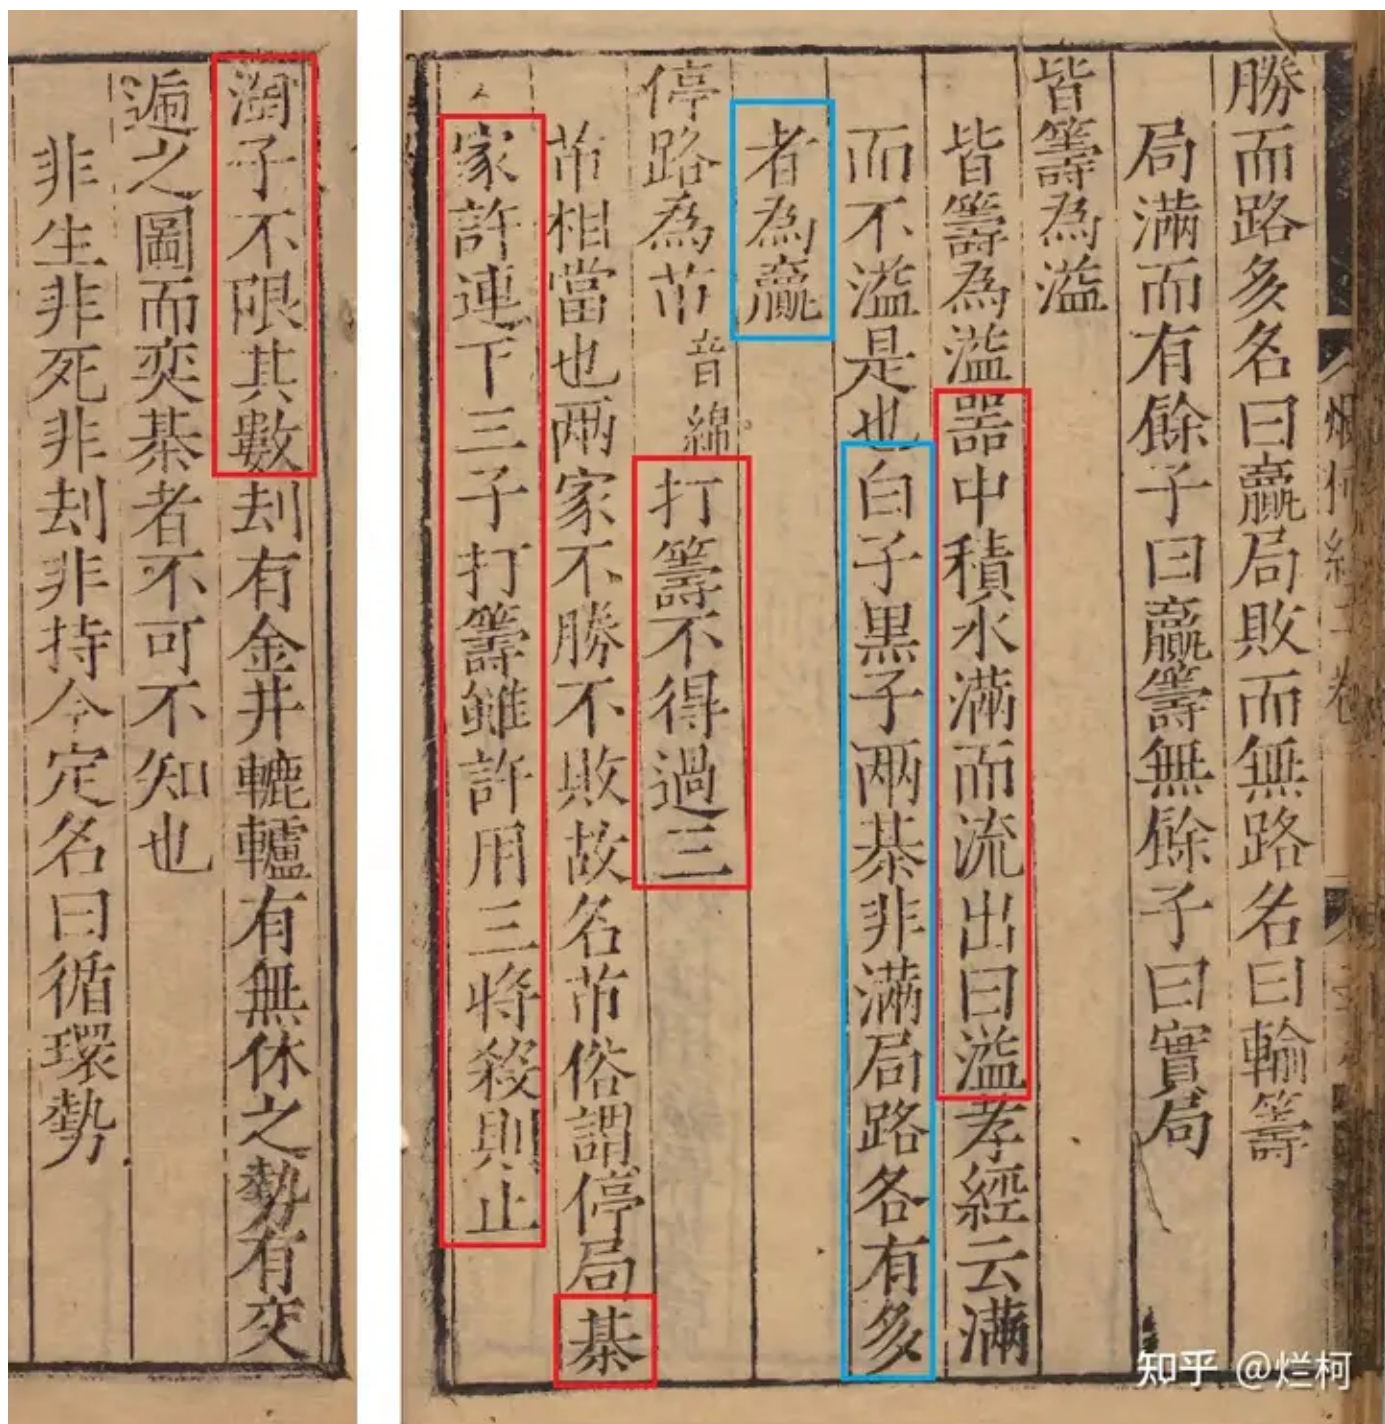 勝而路多名曰贏局敗而無路名曰輸籌
局滿而有餘子曰贏籌無餘子曰實局
皆籌為溢
皆籌為溢器中積水滿而流出曰溢孝經云滿
而不溢是也白子黑子兩棊非滿局路各有多
者為贏
停路為芇音綿打籌不得過三
芇相當也兩家不勝不敗故名芇俗謂停局棊
家許連下三子打籌雖許用三將殺則止
不限其數刦有金井轆轤有無休之勢有交
遍之圖而奕棊者不可不知也
非生非死非刦非持今定名曰循環勢
知乎 @烂柯